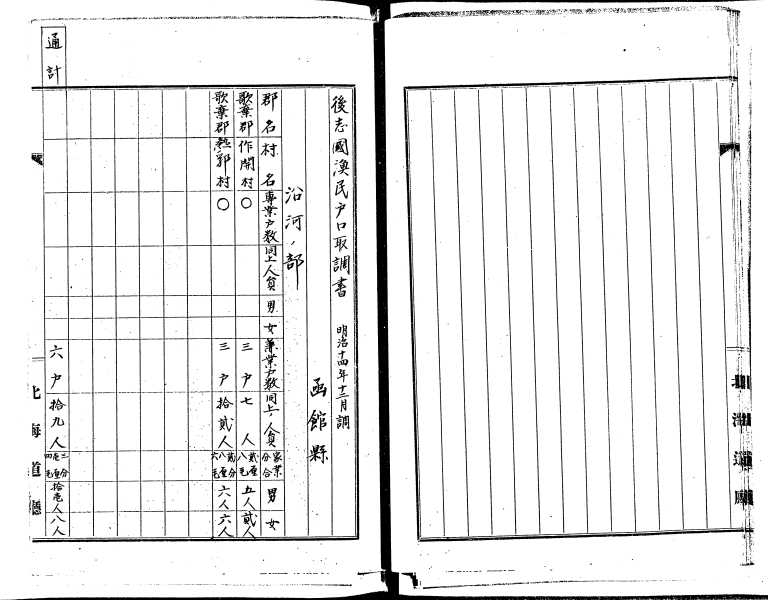 後志國漁民戸口取調書 明治十四年十二月調
函館縣
沿河ノ部
郡名 村名 專業戸数 同上人員 男 女 兼業戸数 同上人員 家業分合 男 女
歌棄郡 作開村 〇 三戸 七人 貳厘八毛 五人 貳人
歌棄郡 熱郛村 〇 三戸 拾貳人 貳分八厘六毛 六人 六人
通計 六戸 拾九人 拾壱人 八人
北海道廳
北海道廳